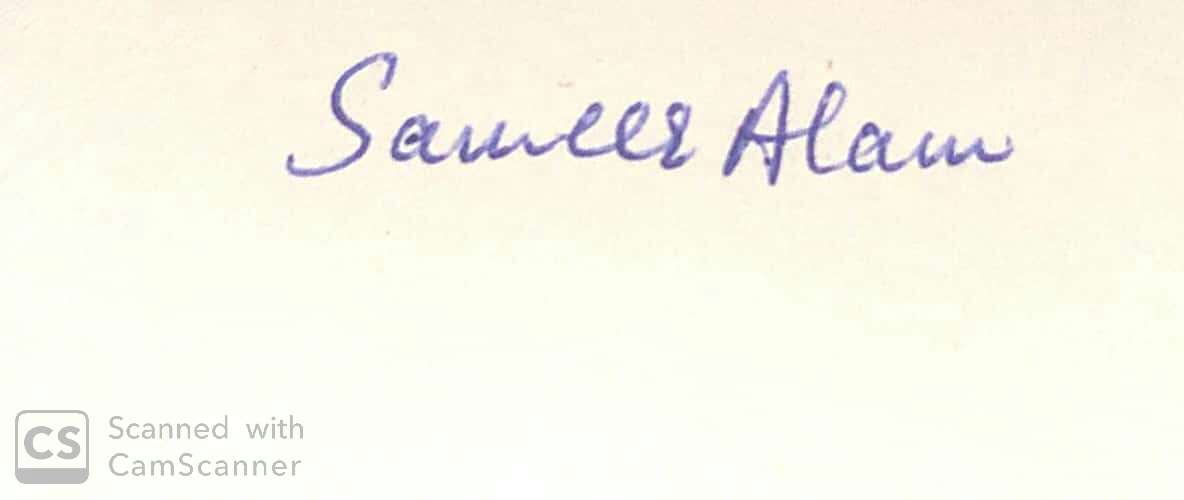 Sameer Alam
CS Scanned with
CamScanner